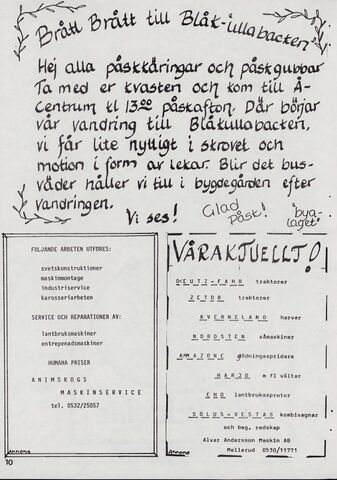 Brått Brått till Blåkullabacken
Hej alla påskkäringar och påskgubbar
Ta med er kvasten och kom till Å-
Centrum kl 13.00 påskafton. Där börjar
vår vandring till Blåkullabacken,
vi får lite nyttigt i skrovet och
motion i form av lekar. Blir det bus-
väder håller vi till i bygdegården efter
vandringen.
Vi ses!
Glad
Påsk!
bya-
laget
FÖLJANDE ARBETEN UTFÖRES:
svetskonstruktioner
maskinmontage
industriservice
karosseriarbeten
SERVICE OCH REPARATIONER AV:
lantbruksmaskiner
entrepenadsmaskiner
HUMANA PRISER
ANIMSKOGS
MASKINSERVICE
tel. 0532/25057
Annons
VÅRAKTUELLT!
DEUTZ-FAHR traktorer
ZETOR traktorer
KVERNELAND harvar
NORDSTEN såmaskiner
AMAZONE gödningsspridare
HARJO m fl vältar
EHO lantbrukssprutor
SOLUS-VESTAS kombivagnar
och beg. redskap
Alvar Andersson Maskin AB
Mellerud 0530/11771
Annons
10